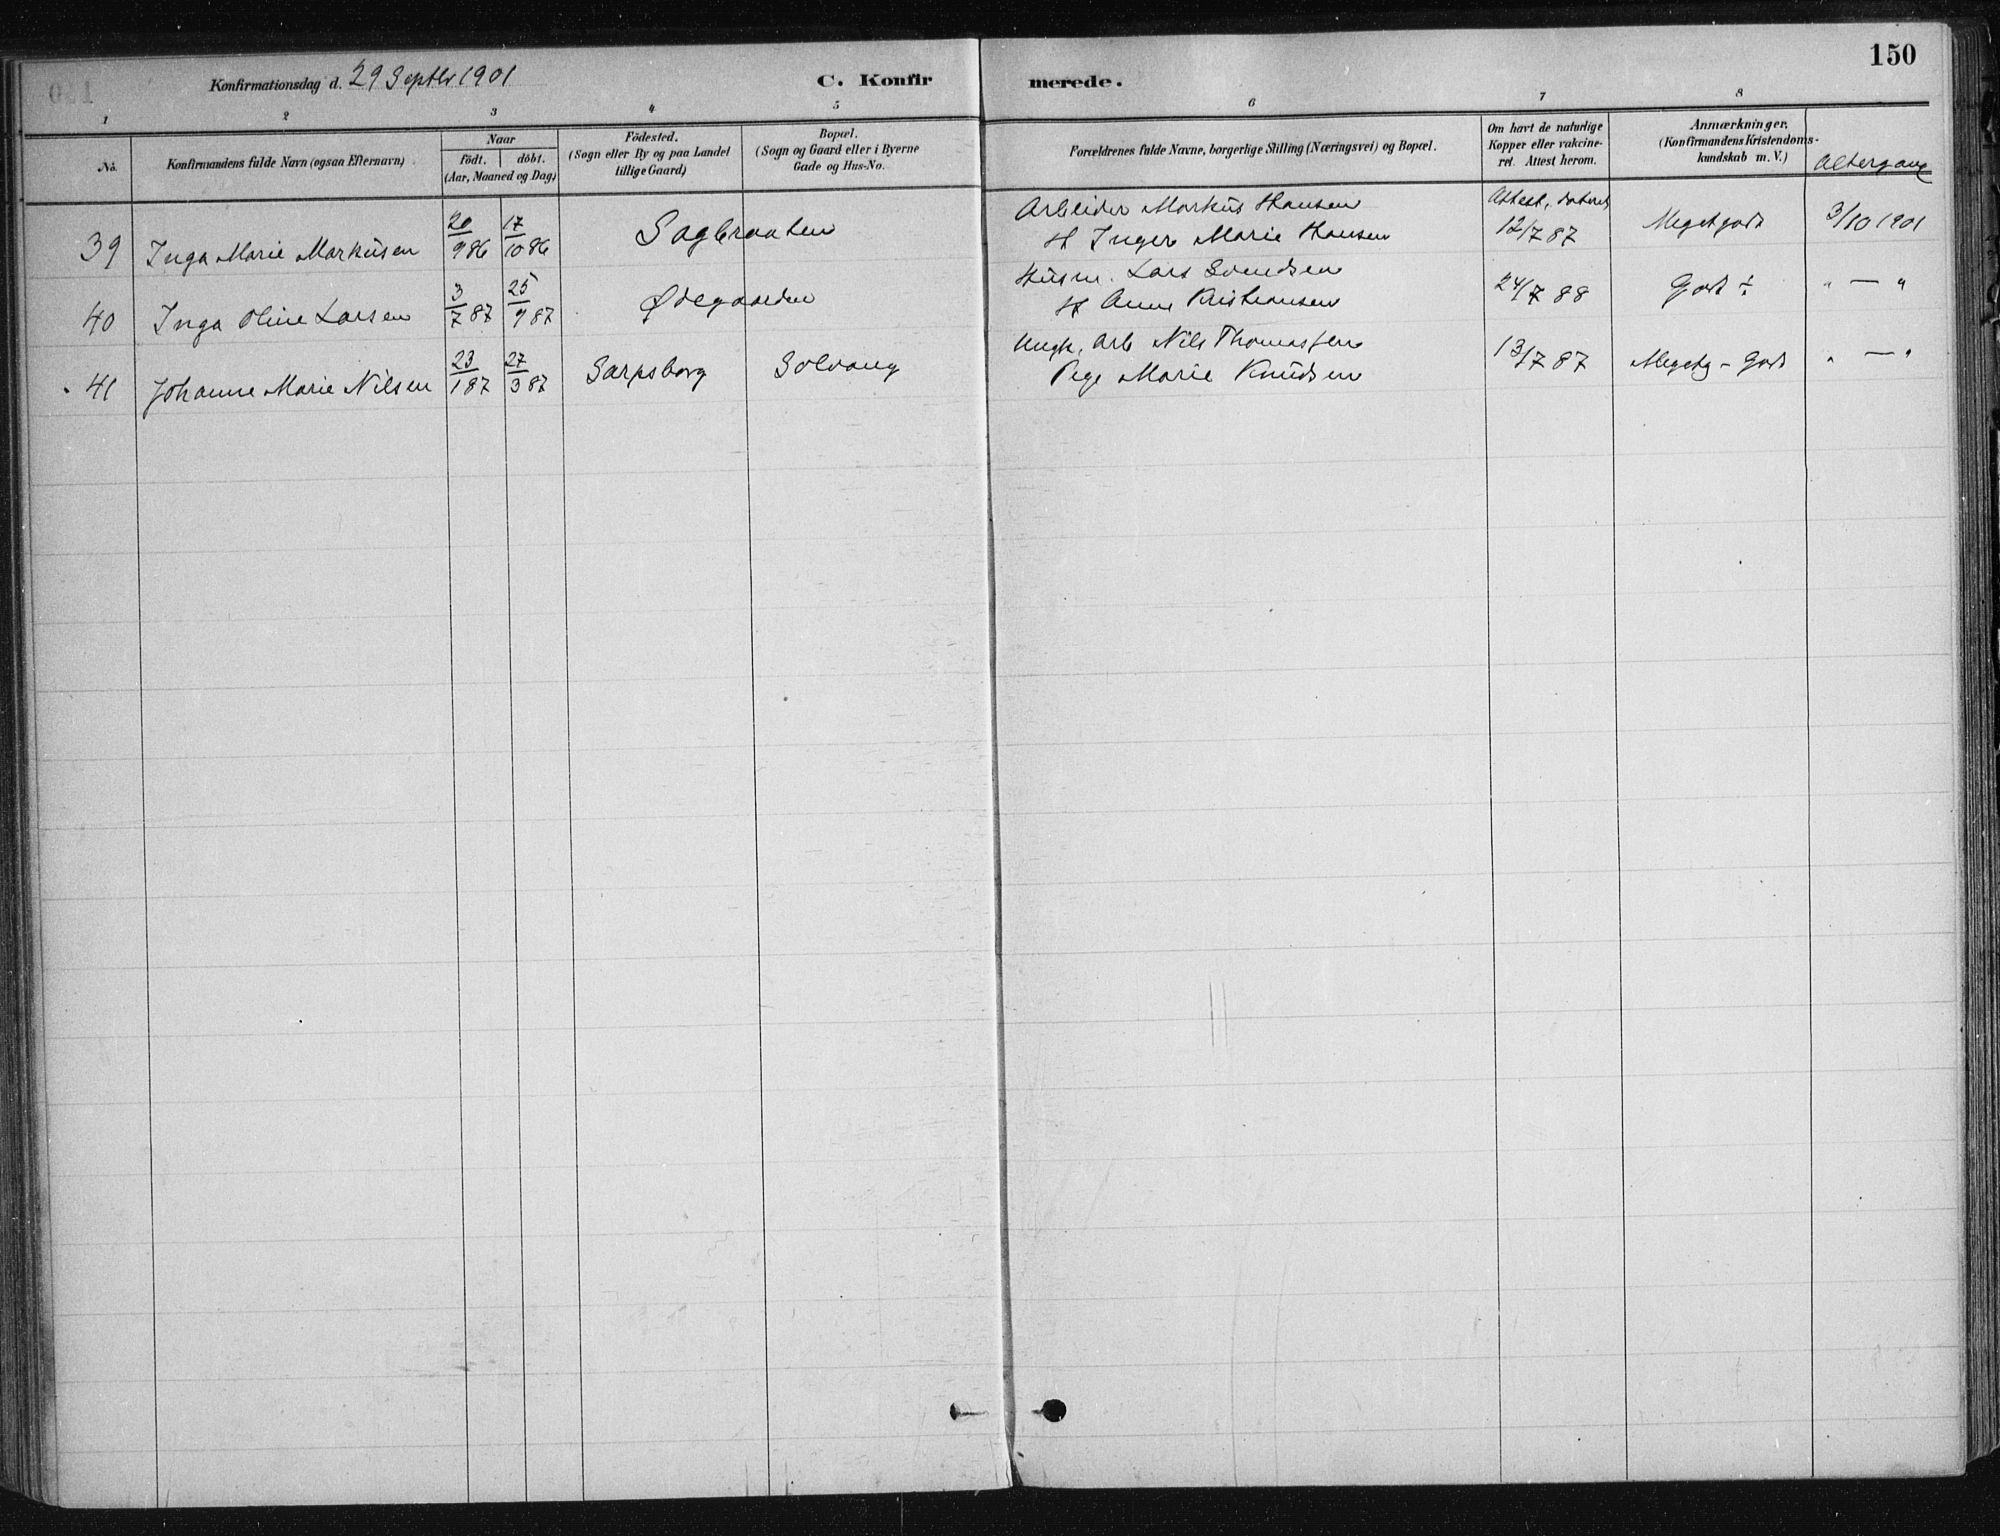 150
Konfirmationsdag d. 29 Septbr 1901
C. Konfirmerede.
1 2 3 4 5 6 7 8
No.
Konfirmandens fulde Navn (ogsaa Efternavn)
Naar
Födt. döbt.
(Aar, Maaned og Dag)
Födested.
(Sogn eller By og paa Landet
tillige Gaard)
Bopæl.
(Sogn og Gaard eller i Byerne
Gade og Hus-No.
Forældrenes fulde Navne, borgerlige Stilling (Næringsvei) og Bopæl.
Om havt de naturlige
Kopper eller vakcine-
ret. Attest herom.
Anmærkninger,
(Konfirmandens Kristendoms-
kundskab m. V.)
Altergang
39 Inga Marie Markusen 20/9 86 17/10 86 Sagbraaten
Arbeider Markus Hansen
H Inger Marie Hansen
Attest, dateret
12/7 87 Meget godt 3/10 1901
40 Inga Oline Larsen 3/7 87 25/9 87 Ødegaarden
Husm. Lars Svendsen
H Anne Kristiansen
24/7 88 Godt ÷ " — "
41 Johanne Marie Nilsen 23/1 87 27/3 87 Sarpsborg Solvang
Ungk. Arb Nils Thomassen
Pige Marie Knudsen
13/7 87 Megetg - Godt " — "